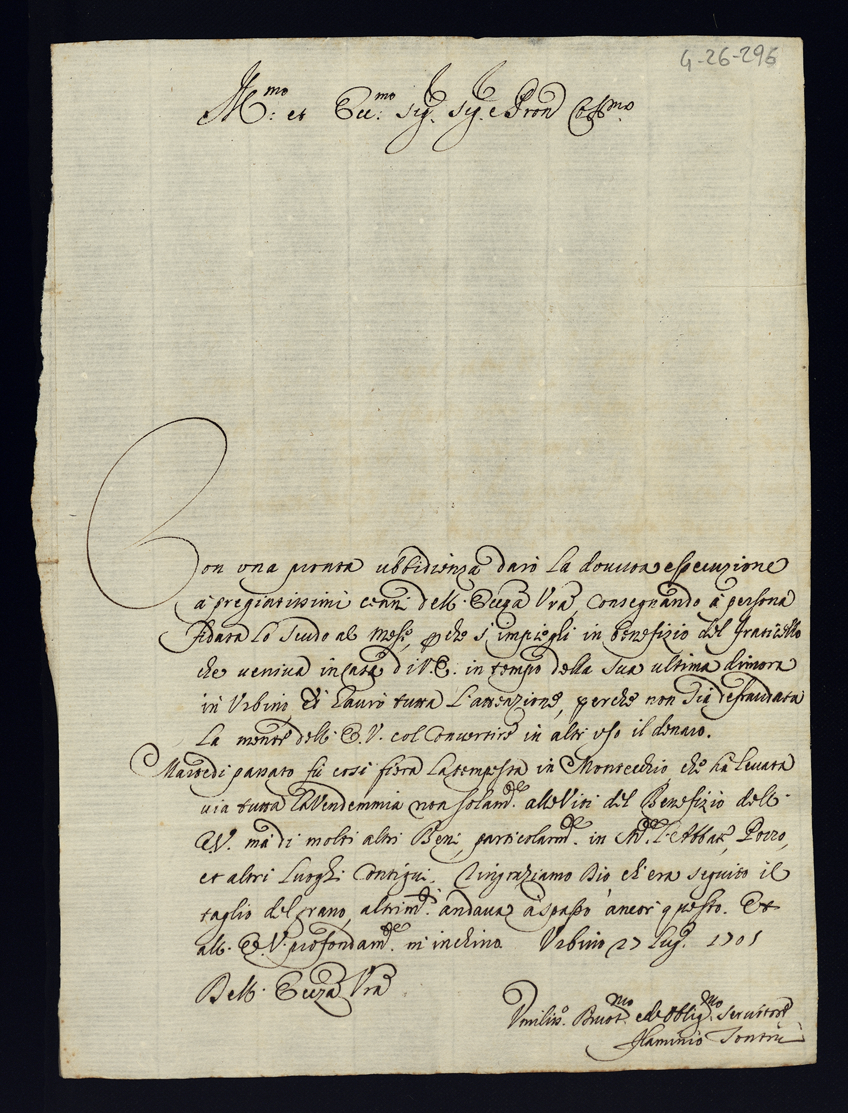 4-26-296
Ill.mo: et Ecc.mo: Sig. Sig. e Pron Col.mo
Con una pronta ubbidienza darò la dovuta essecuzione
à pregiatissimi cenni dell. Eccza Vra, consegnando à persona
fidata lo scudo al mese, pche s'impieghi in benefizio del fraticello
che veniva in casa di V.E. in tempo della sua ultima dimora
in Urbino, et havrò tutta l'attenzione, perche non sia defraudata
la mente dell. E.V. col convertire in altr uso il denaro.
Martedi passato fù così fiera la tempesta in Montecchio che hà levata
via tutta la Vendemmia non solamde. alle Viti del Benefizio dell.
E.V. mà di molti altri Beni, particolarmde. in Abbat, Pozzo,
et altri Luoghi contigui. Ringraziamo Dio ch'era seguito il
taglio del grano, altrimde. andava à spasso ancor questo. Et
all. E.V. profondamde. m'inchino Urbino 27 Lug. 1701
Dell. Eccza Vra
Umiliss. Devot.mo ed Oblig.mo Servitore
Flaminio